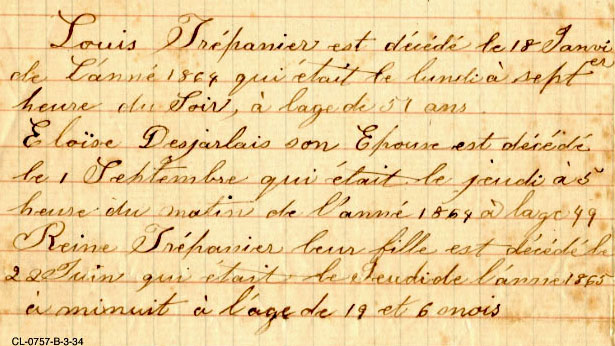 Louis Trépanier est décédé le 18 Janvier
de L'anné 1864 qui était le lundi à sept
heure du Soir, à lage de 57 ans
Eloïse Desjarlais son Epouse est décédé
le 1 Septembre qui était le jeudi à 5
heure du matin de l'anné 1864 à lage 49
Reine Trépanier leur fille est décédé le
22 Juin qui était le Jeudi de l'anne 1865
à minuit à l'age de 19 et 6 mois
CL-0757-B-3-34